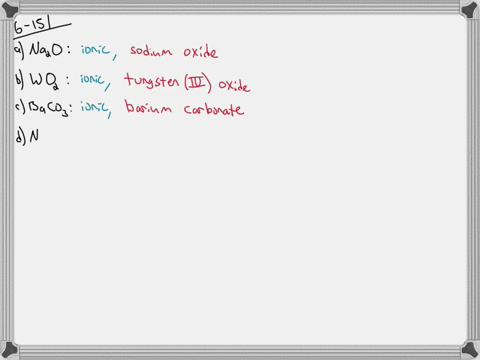 6-151
a) Na2O: ionic, sodium oxide
b) WO2: ionic, tungsten (IV) oxide
c) BaCO3: ionic, barium carbonate
d) N